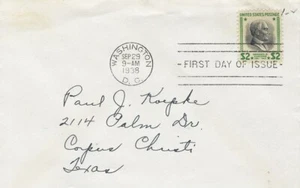 1-2
UNITED STATES POSTAGE
$2 $2
WASHINGTON
SEP 29
9-AM
1938
D. C.
FIRST DAY OF ISSUE
Paul J. Koepke
2114 Palm Dr.
Corpus Christi
Texas